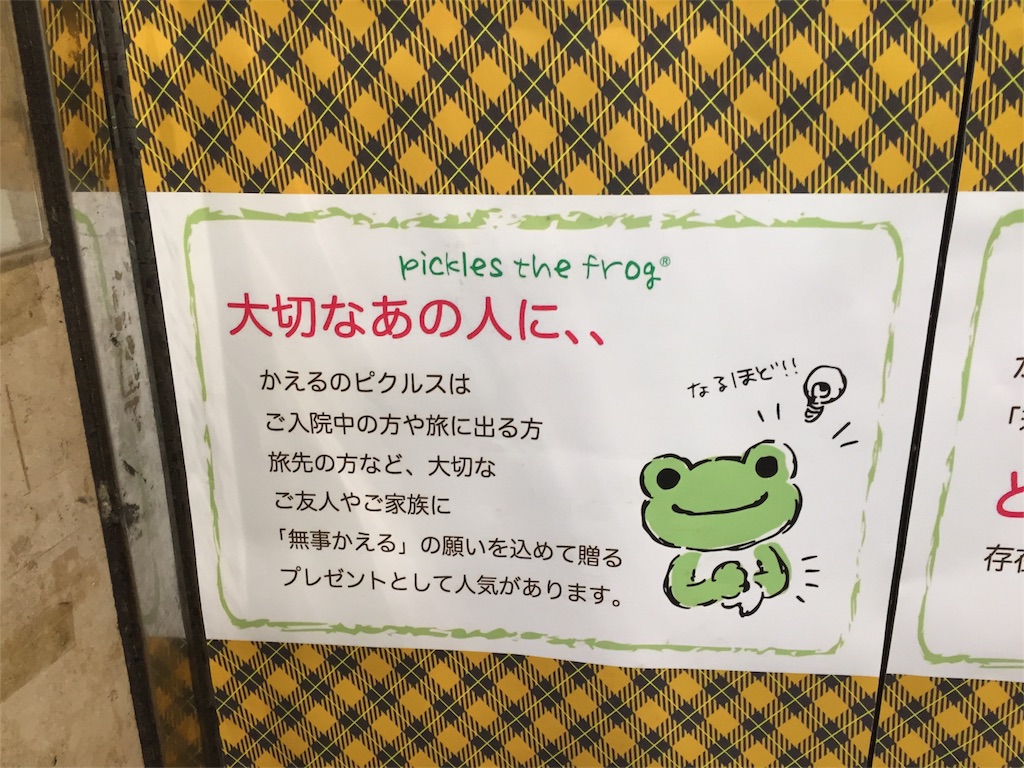 pickles the frog®
大切なあの人に、、
かえるのピクルスは
ご入院中の方や旅に出る方
旅先の方など、大切な
ご友人やご家族に
「無事かえる」の願いを込めて贈る
プレゼントとして人気があります。
なるほど!!
存在